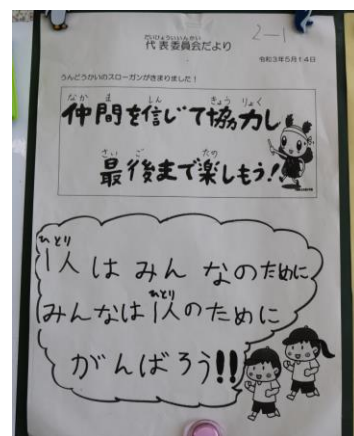 2-1
だいひょういいんかい
代表委員会だより
令和3年5月14日
うんどうかいのスローガンがきまりました！
なかま しん きょうりょく
仲間を信じて協力し
さいご たの
最後まで楽しもう!
ひとり
1人はみんなのために
ひとり
みんなは1人のために
がんばろう!!